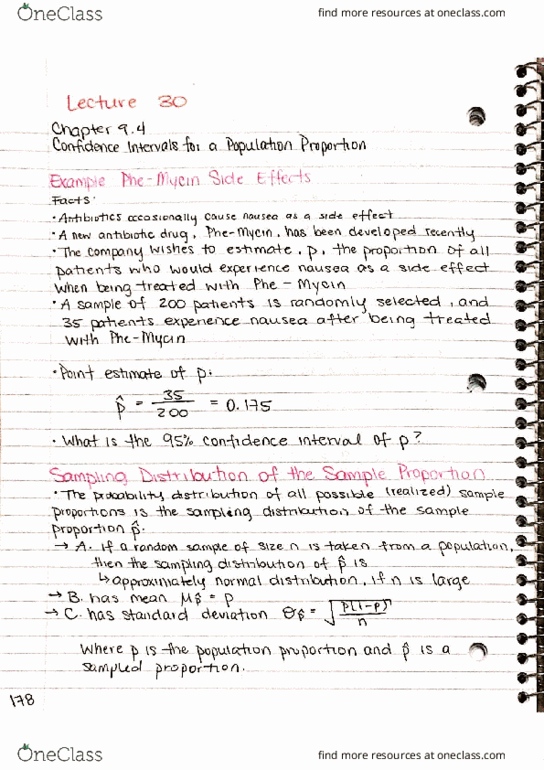 OneClass find more resources at oneclass.com
Lecture 30
Chapter 9.4
Confidence Intervals for a Population Proportion
Example Phe-Mycin Side Effects
Facts:
• Antibiotics occasionally cause nausea as a side effect
• A new antibiotic drug, Phe-Mycin, has been developed recently
• The company wishes to estimate, p, the proportion of all
patients who would experience nausea as a side effect
when being treated with Phe-Mycin
• A sample of 200 patients is randomly selected, and
35 patients experience nausea after being treated
with Phe-Mycin
• Point estimate of p:
p̂ = 35/200 = 0.175
• What is the 95% confidence interval of p?
Sampling Distribution of the Sample Proportion
• The probability distribution of all possible (realized) sample
proportions is the sampling distribution of the sample
proportion p̂.
→ A. if a random sample of size n is taken from a population,
then the sampling distribution of p̂ is
↳ approximately normal distribution, if n is large
→ B. has mean μp̂ = p
→ C. has standard deviation σp̂ = √(p(1-p)/n)
Where p is the population proportion and p̂ is a
sampled proportion.
178
OneClass find more resources at oneclass.com